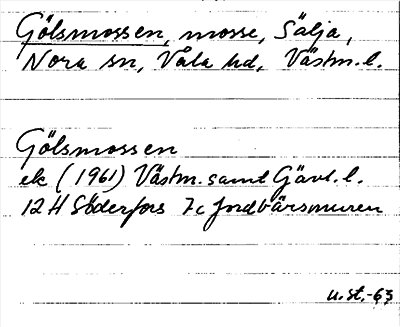 Gölsmossen, mosse, Sälja,
Nora sn, Våla hd, Västm. l.
Gölsmossen
ek (1961) Västm. samt Gävl. l.
12 H Söderfors 7c Jordbärsmuren
u.st.-63